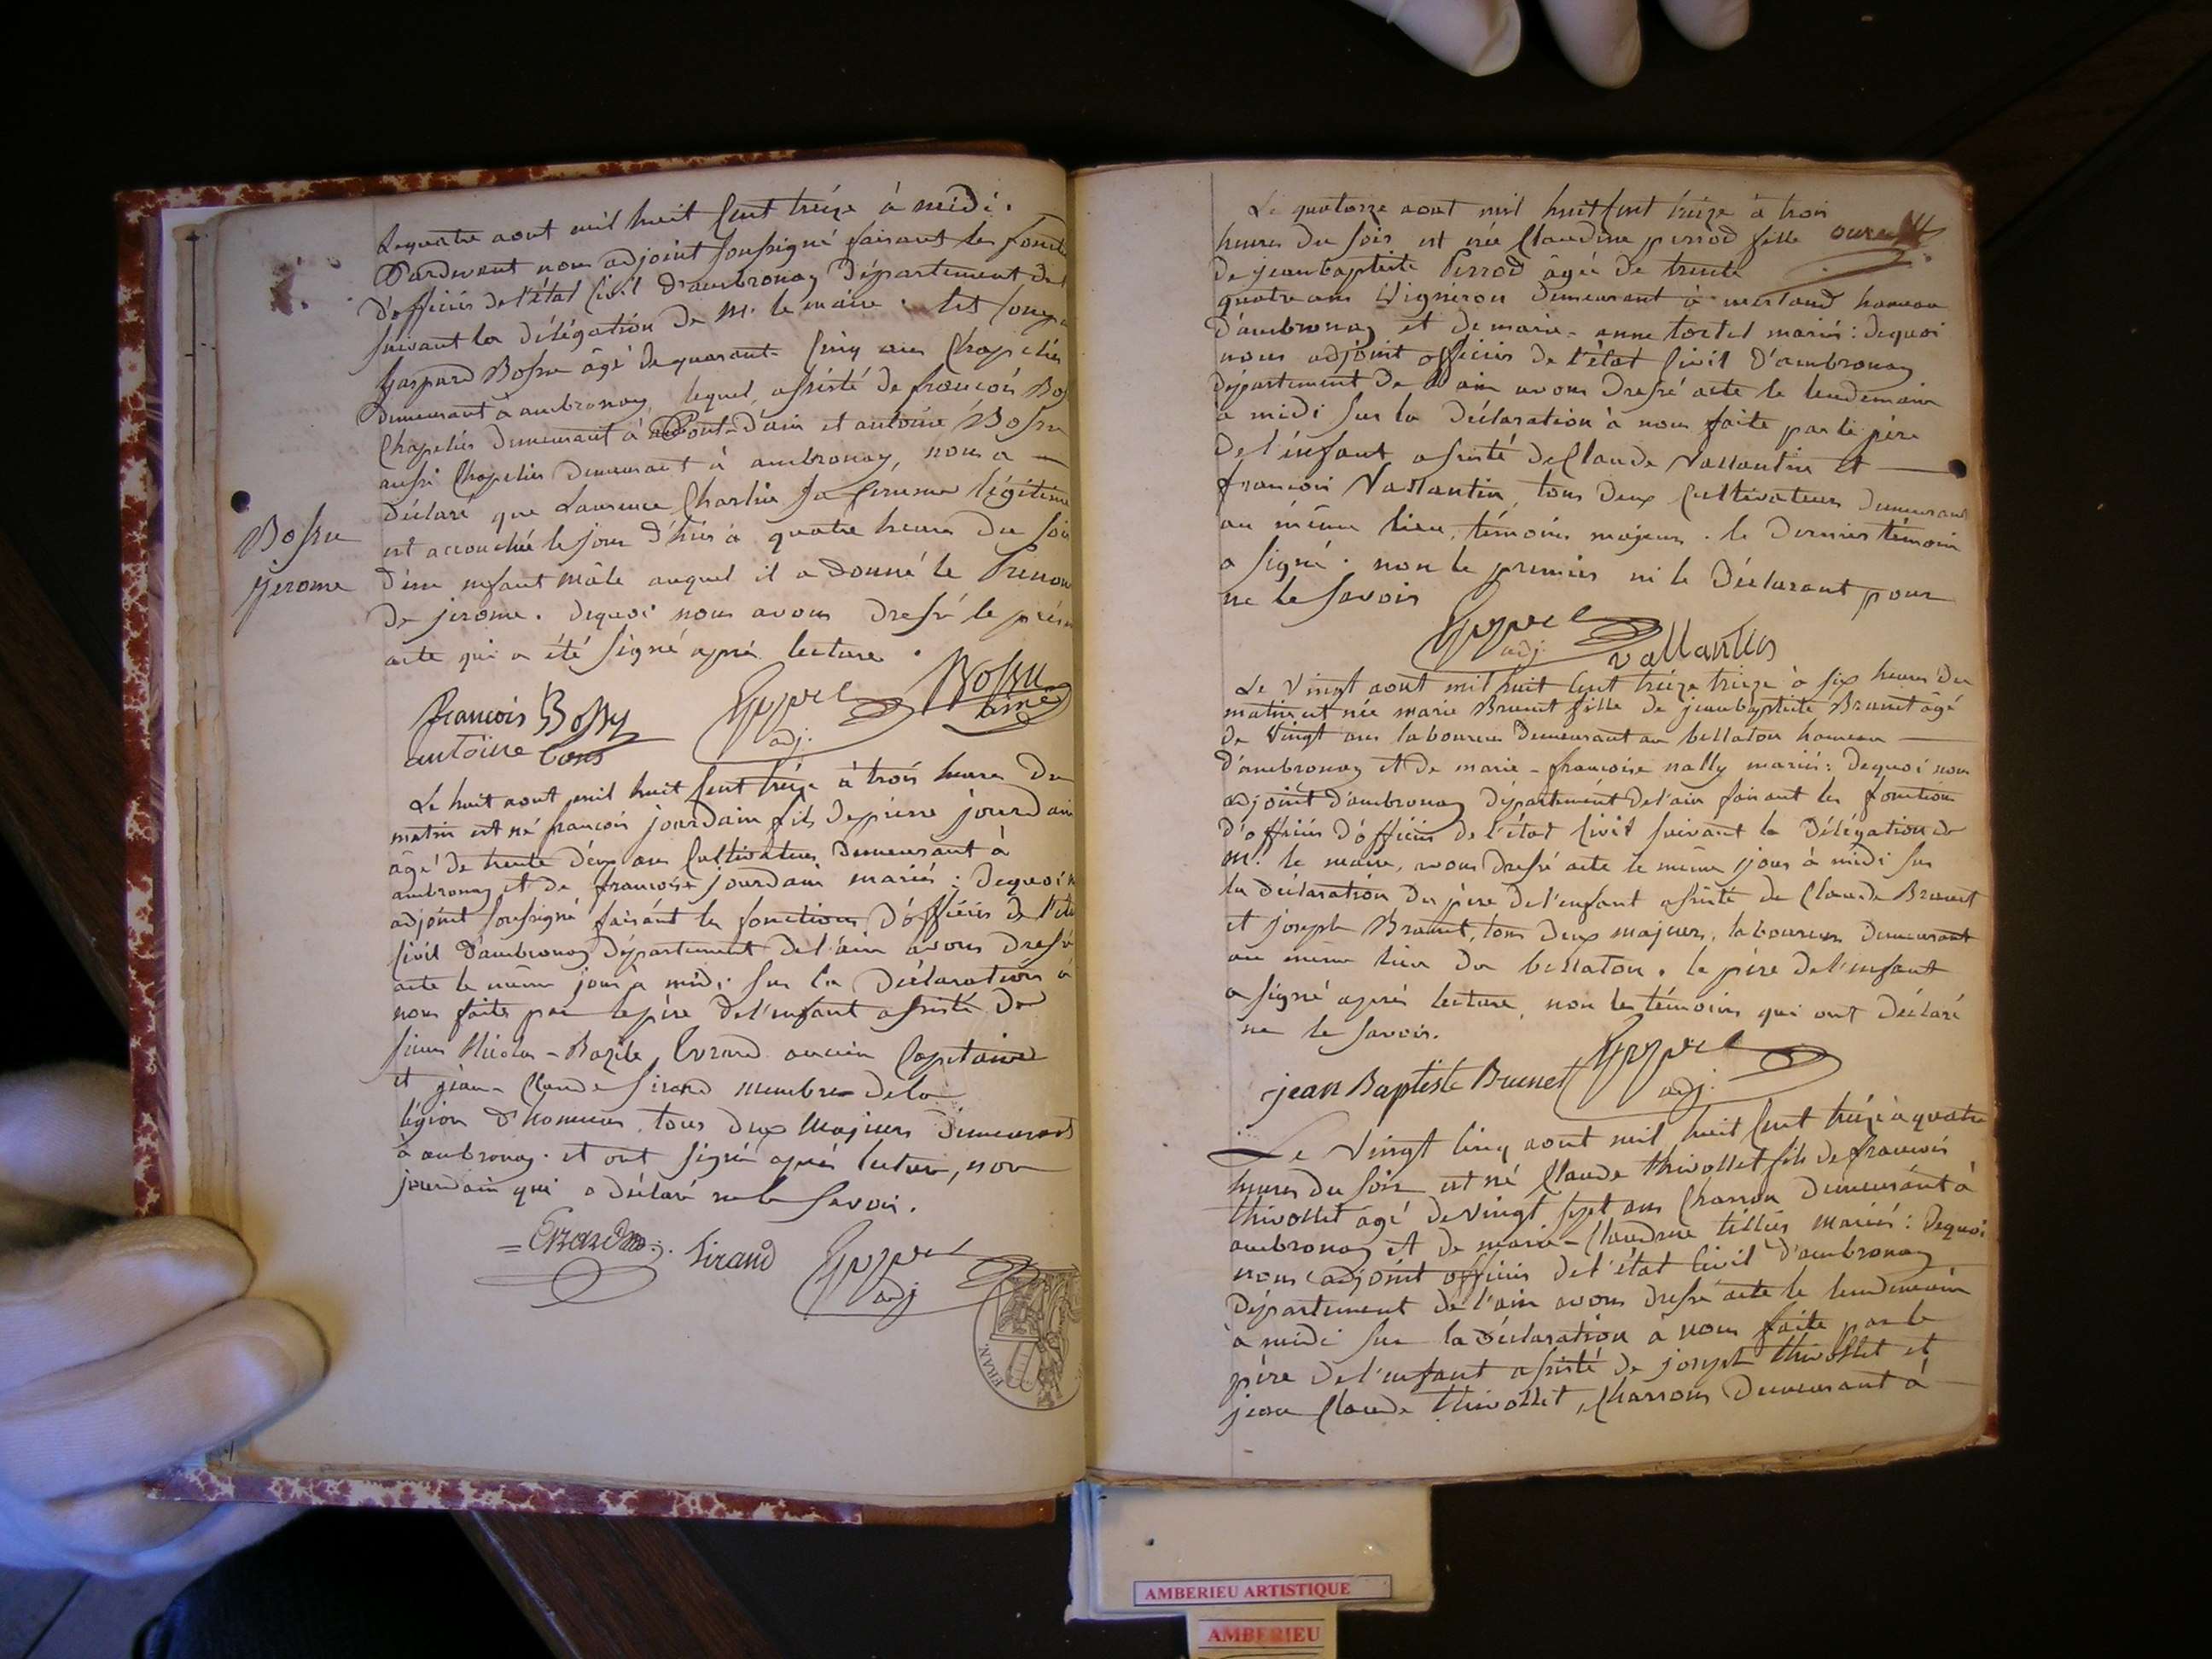 Le quatre aout mil huit Cent treize à midi.
Pardevant nous adjoint soussigné faisant les
d'officier de l'état Civil d'ambronay Département de
suivant la délégation de M. le maire. est
Gaspard Bossu âgé de quarante Cinq ans Chapelier
Demeurant à ambronay, lequel, assisté de françois
Chapelier demeurant à Pont-d'ain et antoine Bossu
aussi Chapelier demeurant à ambronay, nous a
déclaré que Laurence Charlin sa femme légitime
est accouchée le jour d'hier à quatre heures du soir
d'un enfant mâle auquel il a Donné le Prenom
de jerome. dequoi nous avons dressé le
acte qui a été signé aprés lecture.
Bossu
jerome
françois Bossu
antoine
adj.
Bossu
Le huit aout mil huit Cent treize à trois heures du
matin est né françois jourdain fils de pierre jourdain
âgé de trente deux ans Cultivateur demeurant à
ambronay et de françoise jourdain mariés : dequoi
adjoint soussigné faisant les fonctions d'officier de
Civil d'ambronay Département de l'ain avons dressé
acte le même jour à midi sur la Déclaration à
nous faite par le père de l'enfant assisté de
sieur Nicolas-Bazile Evrard ancien Capitaine
et jean-Claude Sirand membre de la
légion d'honneur, tous deux Majeurs demeurant
à ambronay. et ont signé aprés lecture, non
jourdain qui a déclaré ne le savoir.
Sirand
adj
FRAN.
Le quatorze aout mil huit Cent treize à trois
heures du soir est née Claudine perrod fille
de jean baptiste Perrod âgé de trente
quatre ans Vigneron demeurant à merland hameau
d'ambronay et de marie-anne tortel mariés : dequoi
nous adjoint officier de l'état Civil d'ambronay
département de l'ain avons dressé acte le lendemain
à midi sur la déclaration à nous faite par le père
de l'enfant assisté de Claude Vallantin et
françois Vallantin, tous deux Cultivateurs demeurant
au même lieu, témoins majeurs. le dernier témoin
a signé. non le premier ni le Déclarant pour
ne le savoir
adj.
vallantin
Le vingt aout mil huit Cent treize treize à six heures du
matin est née marie Brunet fille de jean baptiste Brunet âgé
de Vingt ans laboureur demeurant au bellaton hameau
d'ambronay et de marie-françoise nally mariés : dequoi nous
adjoint d'ambronay département de l'ain faisant les fonctions
d'officier d'officier de l'état Civil suivant la Délégation de
M. le maire, avons dressé acte le même jour à midi sur
la déclaration du père de l'enfant assisté de Claude Brunet
et joseph Brunet, tous deux majeurs, laboureurs demeurant
au même lieu du bellaton. le père de l'enfant
a signé aprés lecture, non les témoins qui ont Déclaré
ne le savoir.
jean Baptiste Brunet
adj.
Le Vingt Cinq aout mil huit Cent treize à quatre
heures du soir est né Claude thivollet fils de françois
thivollet âgé de vingt sept ans Charron demeurant à
ambronay et de marie-Claudine tillier mariés : Dequoi
nous adjoint officier de l'état Civil d'ambronay
Département de l'ain avons dressé acte le lendemain
à midi sur la déclaration à nous faite par le
père de l'enfant assisté de joseph thivollet et
jean Claude thivollet, Charrons demeurant à
AMBERIEU ARTISTIQUE
AMBERIEU